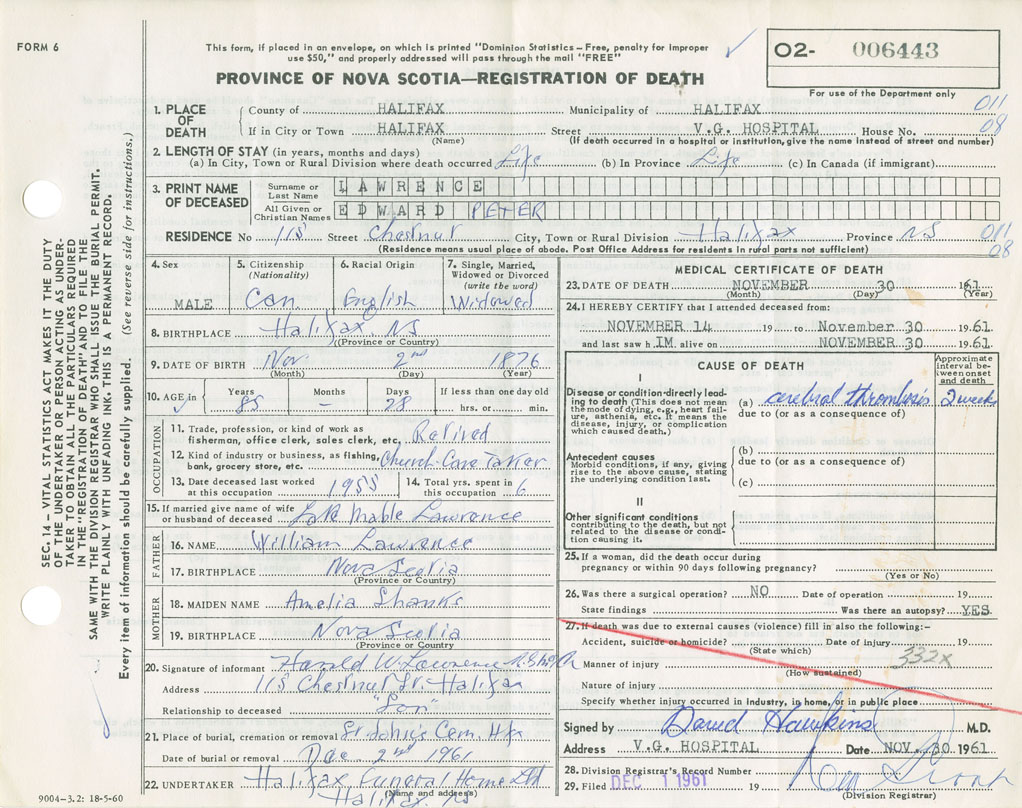 FORM 6
This form, if placed in an envelope, on which is printed "Dominion Statistics—Free, penalty for improper
use $50," and properly addressed will pass through the mail "FREE"
O2- 006443
For use of the Department only
PROVINCE OF NOVA SCOTIA—REGISTRATION OF DEATH
011
08
1. PLACE OF DEATH
County of HALIFAX Municipality of HALIFAX
If in City or Town HALIFAX Street V.G. HOSPITAL House No.
(Name) (If death occurred in a hospital or institution, give the name instead of street and number)
2. LENGTH OF STAY (in years, months and days)
(a) In City, Town or Rural Division where death occurred Life (b) In Province Life (c) In Canada (if immigrant)
3. PRINT NAME OF DECEASED
Surname or Last Name LAWRENCE
All Given or Christian Names EDWARD PETER
RESIDENCE No 115 Street Chestnut City, Town or Rural Division Halifax Province NS
(Residence means usual place of abode. Post Office Address for residents in rural parts not sufficient)
011
08
4. Sex MALE
5. Citizenship (Nationality) Can
6. Racial Origin English
7. Single, Married, Widowed or Divorced (write the word) Widowed
8. BIRTHPLACE Halifax NS
(Province or Country)
9. DATE OF BIRTH Nov 2nd 1876
(Month) (Day) (Year)
10. AGE in Years 85 Months - Days 28 If less than one day old hrs. or min.
OCCUPATION
11. Trade, profession, or kind of work as
fisherman, office clerk, sales clerk, etc. Retired
12. Kind of industry or business, as fishing,
bank, grocery store, etc. Church Care Taker
13. Date deceased last worked
at this occupation 1955
14. Total yrs. spent in
this occupation 6
15. If married give name of wife
or husband of deceased Late Mable Lawrence
FATHER
16. NAME William Lawrence
17. BIRTHPLACE Nova Scotia
(Province or Country)
MOTHER
18. MAIDEN NAME Amelia Shanks
19. BIRTHPLACE Nova Scotia
(Province or Country)
20. Signature of informant Harold W. Lawrence
Address 115 Chestnut St. Halifax
Relationship to deceased "Son"
21. Place of burial, cremation or removal St John's Cem. Hfx
Date of burial or removal Dec 2nd 1961
22. UNDERTAKER Halifax Funeral Home Ltd
(Name and address)
Halifax NS
9004—3.2: 18-5-60
MEDICAL CERTIFICATE OF DEATH
23. DATE OF DEATH NOVEMBER 30 1961
(Month) (Day) (Year)
24. I HEREBY CERTIFY that I attended deceased from:
NOVEMBER 14 19 to November 30 1961
and last saw hIM alive on NOVEMBER 30 1961
CAUSE OF DEATH
Approximate interval between onset and death
I
Disease or condition directly leading
to death (This does not mean
the mode of dying, e.g., heart failure,
asthenia, etc. It means the
disease, injury, or complication
which caused death.)
(a) cerebral thrombosis 2 weeks
due to (or as a consequence of)
Antecedent causes
Morbid conditions, if any, giving
rise to the above cause, stating
the underlying condition last.
(b)
due to (or as a consequence of)
(c)
II
Other significant conditions
contributing to the death, but not
related to the disease or condition
causing it.
25. If a woman, did the death occur during
pregnancy or within 90 days following pregnancy?
(Yes or No)
26. Was there a surgical operation? NO Date of operation 19
State findings Was there an autopsy? YES
27. If death was due to external causes (violence) fill in also the following:—
Accident, suicide or homicide? Date of injury 19
(State which)
332X
Manner of injury
(How sustained)
Nature of injury
Specify whether injury occurred in industry, in home, or in public place
Signed by David Hawkins M.D.
Address V.G. HOSPITAL Date NOV. 30 1961
28. Division Registrar's Record Number
29. Filed DEC 1 1961
(Division Registrar)
SEC. 14—VITAL STATISTICS ACT MAKES IT THE DUTY
OF THE UNDERTAKER OR PERSON ACTING AS UNDERTAKER
TO OBTAIN ALL THE PARTICULARS REQUIRED
IN THE "REGISTRATION OF DEATH" AND TO FILE THE
SAME WITH THE DIVISION REGISTRAR WHO SHALL ISSUE THE BURIAL PERMIT.
WRITE PLAINLY WITH UNFADING INK. THIS IS A PERMANENT RECORD.
Every item of information should be carefully supplied. (See reverse side for instructions.)